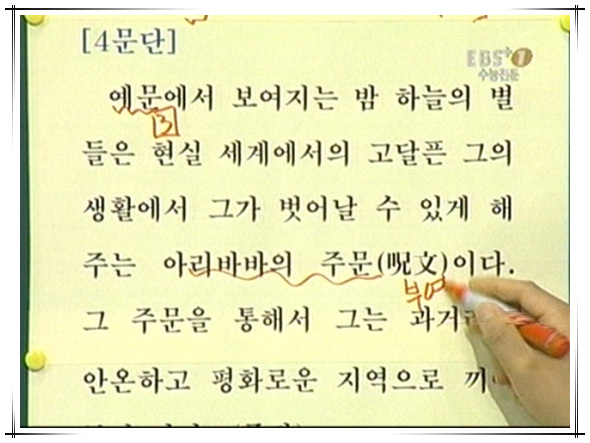 [4문단]
EBS+1
수능전문
예문에서 보여지는 밤 하늘의 별
3
들은 현실 세계에서의 고달픈 그의
생활에서 그가 벗어날 수 있게 해
주는 아리바바의 주문(呪文)이다.
부여
그 주문을 통해서 그는
안온하고 평화로운 지역으로